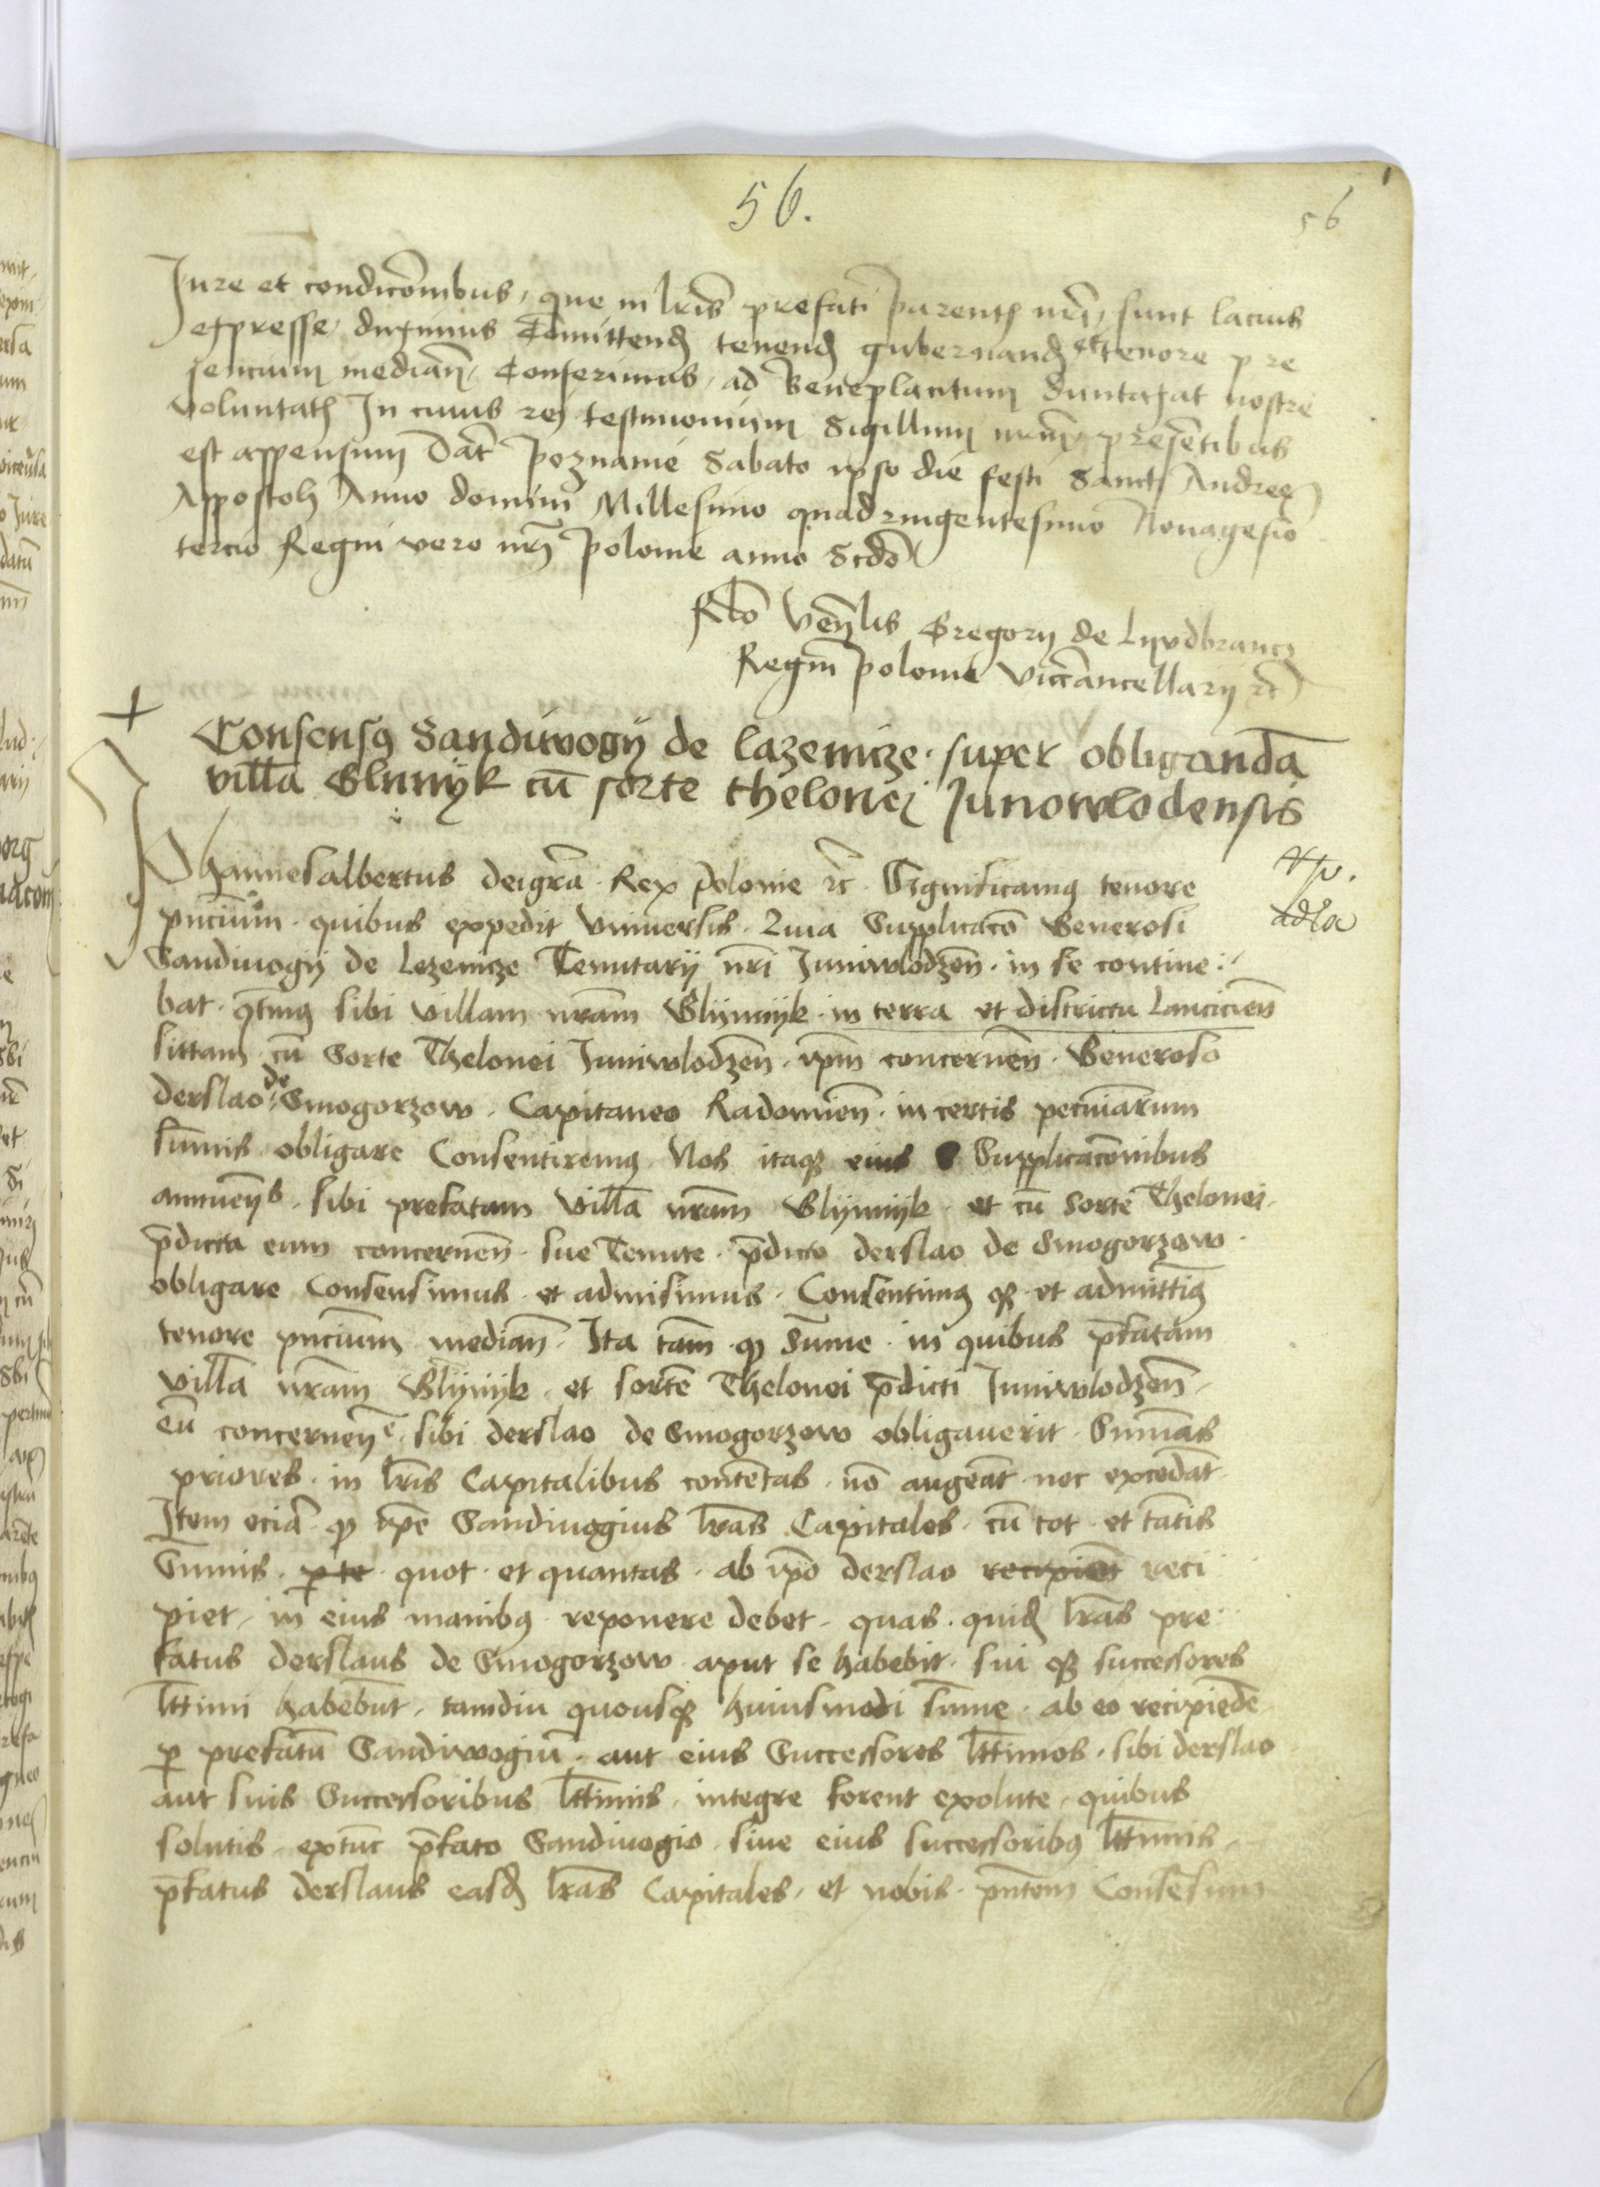 56.
56
Jure et condicōnibus, que in lr̄is prefati parentꝭ nrī sunt lacius
expresse duximus Comittendꝭ tenendꝭ gubernandꝭ et tenore pre
sencium median̄ Conferimus, ad Beneplacitum duntaxat nostre
voluntatꝭ In cuius rei testimonium Sigillum nrūm presētibus
est appensum Dat̄ poznanie Sabato ipso die festi Sancti Andree
Appostoli Anno domini Millesimo quadringentesimo Nonagesiō
tercio Regni vero nrī polonie anno Scdō
Rlō Ven̄lis Gregorij de Lyvdbrancz
Regnī polonie vicēancellarij rc̄
+
Consensꝰ Sandiwogij de lazenicze super obligandā
villā Slunyk cū sorte thelonei Junowlodensis
Johannesalbertus dei grā Rex polonie rc̄ Significamꝰ tenore
pn̄cium quibus expedit vniuersis Quia Supplicacō Generosi
Sandiuogij de Lezenicze Tenutarij nrī Juniwlodzen̄ in se contine
bat qt̄inꝰ sibi villam nrām Slynnyk in terra et districtu Lancicien̄
sittam cū Sorte Thelonei Juniwlodzen̄ ip̄m concernen̄ Generoso
derslao de Smogorzow Capitaneo Radomien̄ in certis pecuniarum
sūmis obligare Consentiremꝰ Nos itaqꝫ eius Supplicacōnibus
annuen̄s sibi prefatam villā nrām Slynnyk et cū sorte Thelonei
p̄dicta eum concernen̄ sue Tenute p̄dicto derslao de Smogorzow
obligare Consensimus et admisimus Consentimꝰ qꝫ et admittimꝰ
tenore pn̄cium median̄ Ita tam̄ qꝫ Sūme in quibus p̄fatam
villā nrām Slynyk et sortē Thelonei p̄dicti Juniwlodzen̄
eū concernen̄ sibi derslao de Smogorzow obligauerit Sūmas
priores in lr̄is Capitalibus contētas nō augeāt nec excedāt
Item eciā qꝫ ip̄e Sandiuogius lrās Capitales cū tot et tātis
Sūmis p te quot et quantas ab ip̄o derslao recipiēt reci
piet in eius manibꝰ reponere debet quas quidꝭ lrās pre
fatus derslaus de Smogorzow aput se habebit sui qꝫ successores
lttimi habebūt tamdiu quousqꝫ huiusmodi sūme ab eo recipiēde
p prefatū Sandiwogiū aut eius Successores lttimos sibi derslao
aut suis Successoribus lttimis integre forent exolute quibus
solutis extūc p̄fato Sandiuogio siue eius successoribꝰ lttimis
p̄fatus derslaus easdꝭ lrās Capitales et nobis pn̄tem Consēsum